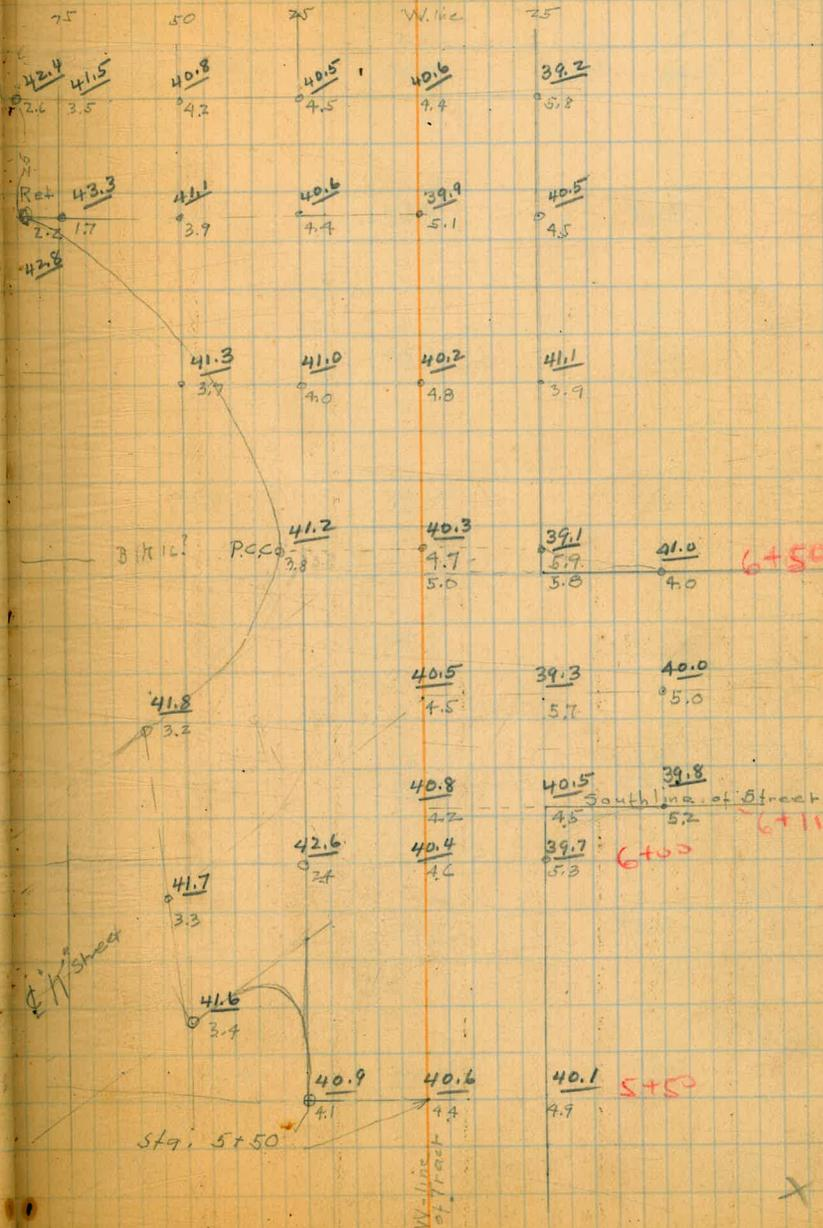 75 50 25 W. line 25
42.4 41.5 40.8 40.5 40.6 39.2
2.6 3.5 4.2 4.5 4.4 5.8
Ret 43.3 41.1 40.6 39.9 40.5
2.2 1.7 3.9 4.4 5.1 4.5
42.8
41.3 41.0 40.2 41.1
3.7 4.0 4.8 3.9
P.C.C. 41.2 40.3 39.1 41.0 6+50
3.8 4.7 5.9
5.0 5.8 4.0
40.5 39.3 40.0
41.8 4.5 5.7 5.0
3.2
40.8 40.5 39.8
South line of Street
4.2 4.5 5.2 6+11
42.6 40.4 39.7 6+00
2.4 4.6 5.3
41.7
3.3
℄ "K" Street
41.6
3.4
40.9 40.6 40.1 5+50
4.1 4.4 4.9
Sta. 5+50
W-line
of Tract
X